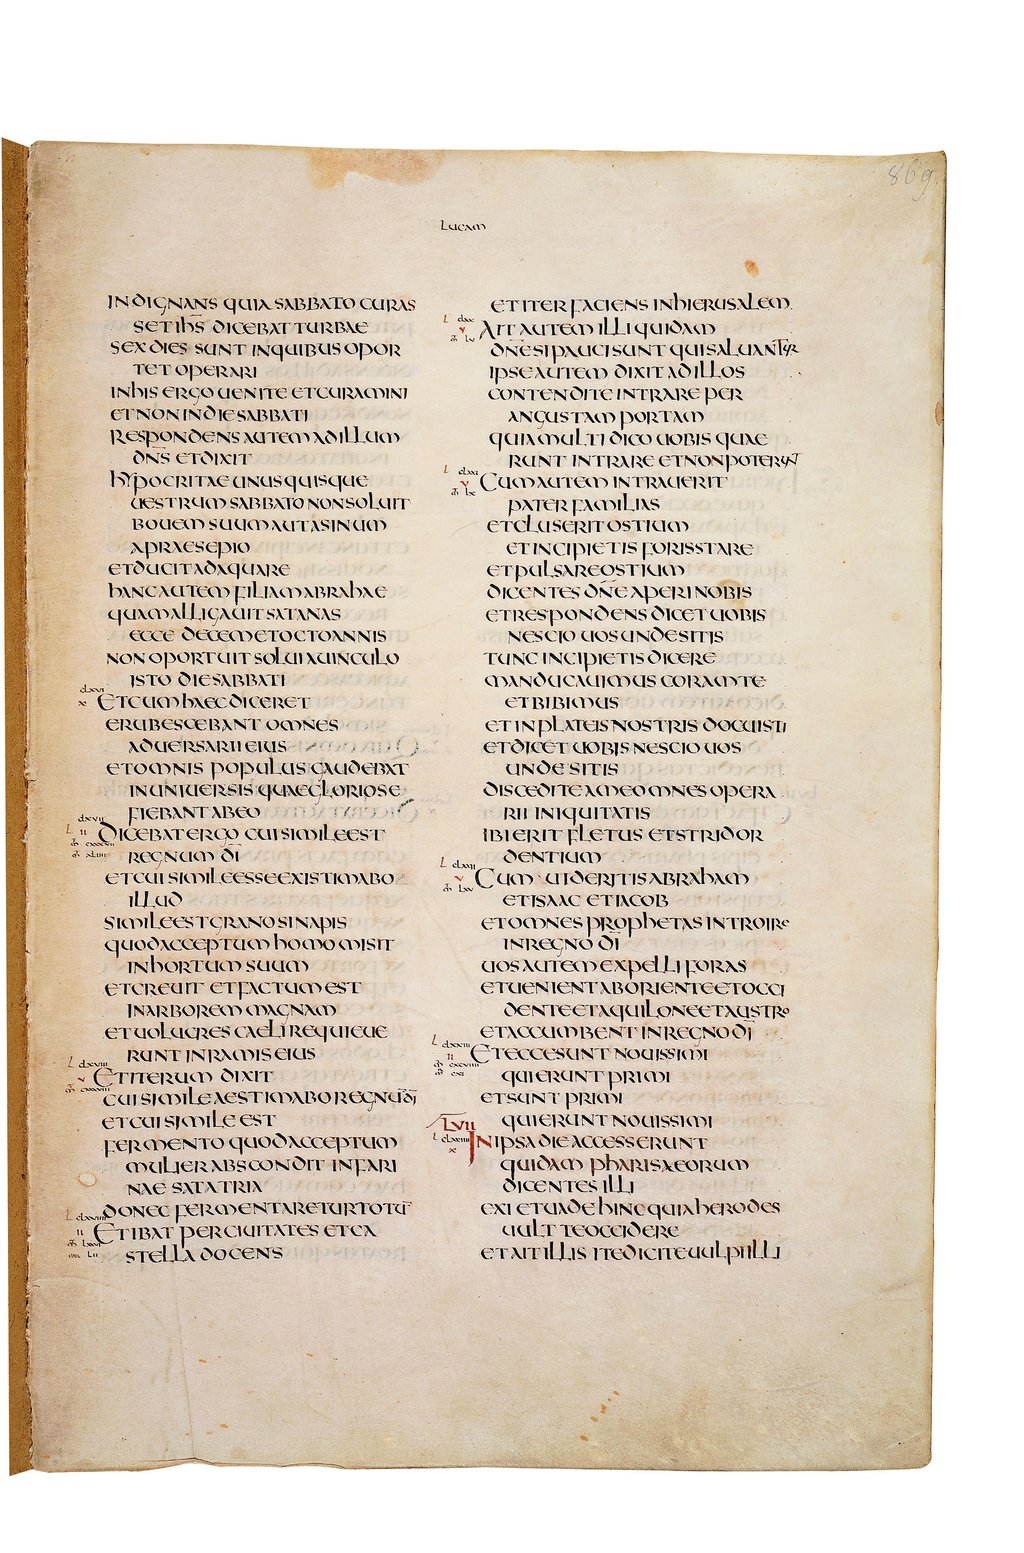 869
LUCAM
INDIGNANS QUIA SABBATO CURAS
SET IHS DICEBAT TURBAE
SEX DIES SUNT IN QUIBUS OPOR
TET OPERARI
IN HIS ERGO UENITE ET CURAMINI
ET NON IN DIE SABBATI
RESPONDENS AUTEM AD ILLUM
DNS ET DIXIT
HYPOCRITAE UNUSQUISQUE
UESTRUM SABBATO NON SOLUIT
BOUEM SUUM AUT ASINUM
A PRAESEPIO
ET DUCIT ADAQUARE
HANC AUTEM FILIAM ABRAHAE
QUAM ALLIGAUIT SATANAS
ECCE DECEM ET OCTO ANNIS
NON OPORTUIT SOLUI A UINCULO
ISTO DIE SABBATI
clxvi
x ET CUM HAEC DICERET
ERUBESCEBANT OMNES
ADUERSARII EIUS
ET OMNIS POPULUS GAUDEBAT
IN UNIUERSIS QUAE GLORIOSE
FIEBANT AB EO
clxvii
L II DICEBAT ERGO CUI SIMILE EST
REGNUM DI
ET CUI SIMILE ESSE EXISTIMABO
ILLUD
SIMILE EST GRANO SINAPIS
QUOD ACCEPTUM HOMO MISIT
IN HORTUM SUUM
ET CREUIT ET FACTUM EST
IN ARBOREM MAGNAM
ET UOLUCRES CAELI REQUIEUE
RUNT IN RAMIS EIUS
L clxviii
v ET ITERUM DIXIT
CUI SIMILE AESTIMABO REGNU DI
ET CUI SIMILE EST
FERMENTO QUOD ACCEPTUM
MULIER ABSCONDIT IN FARI
NAE SATA TRIA
DONEC FERMENTARETUR TOTU
L clxviiii
II ET IBAT PER CIUITATES ET CA
STELLA DOCENS
ET ITER FACIENS IN HIERUSALEM
L clxx
v AIT AUTEM ILLI QUIDAM
DNE SI PAUCI SUNT QUI SALUANTUR
IPSE AUTEM DIXIT AD ILLOS
CONTENDITE INTRARE PER
ANGUSTAM PORTAM
QUIA MULTI DICO UOBIS QUAE
RUNT INTRARE ET NON POTERUNT
L clxxi
v CUM AUTEM INTRAUERIT
PATER FAMILIAS
ET CLUSERIT OSTIUM
ET INCIPIETIS FORIS STARE
ET PULSARE OSTIUM
DICENTES DNE APERI NOBIS
ET RESPONDENS DICET UOBIS
NESCIO UOS UNDE SITIS
TUNC INCIPIETIS DICERE
MANDUCAUIMUS CORAM TE
ET BIBIMUS
ET IN PLATEIS NOSTRIS DOCUISTI
ET DICET UOBIS NESCIO UOS
UNDE SITIS
DISCEDITE A ME OMNES OPERA
RII INIQUITATIS
IBI ERIT FLETUS ET STRIDOR
DENTIUM
L clxxii
v CUM UIDERITIS ABRAHAM
ET ISAAC ET IACOB
ET OMNES PROPHETAS INTROIRE
IN REGNO DI
UOS AUTEM EXPELLI FORAS
ET UENIENT AB ORIENTE ET OCCI
DENTE ET AQUILONE ET AUSTRO
ET ACCUMBENT IN REGNO DI
L clxxiii
II ET ECCE SUNT NOUISSIMI
QUI ERUNT PRIMI
ET SUNT PRIMI
QUI ERUNT NOUISSIMI
LVII
L clxxiiii
x IN IPSA DIE ACCESSERUNT
QUIDAM PHARISAEORUM
DICENTES ILLI
EXI ET UADE HINC QUIA HERODES
UULT TE OCCIDERE
ET AIT ILLIS ITE DICITE UULPI ILLI